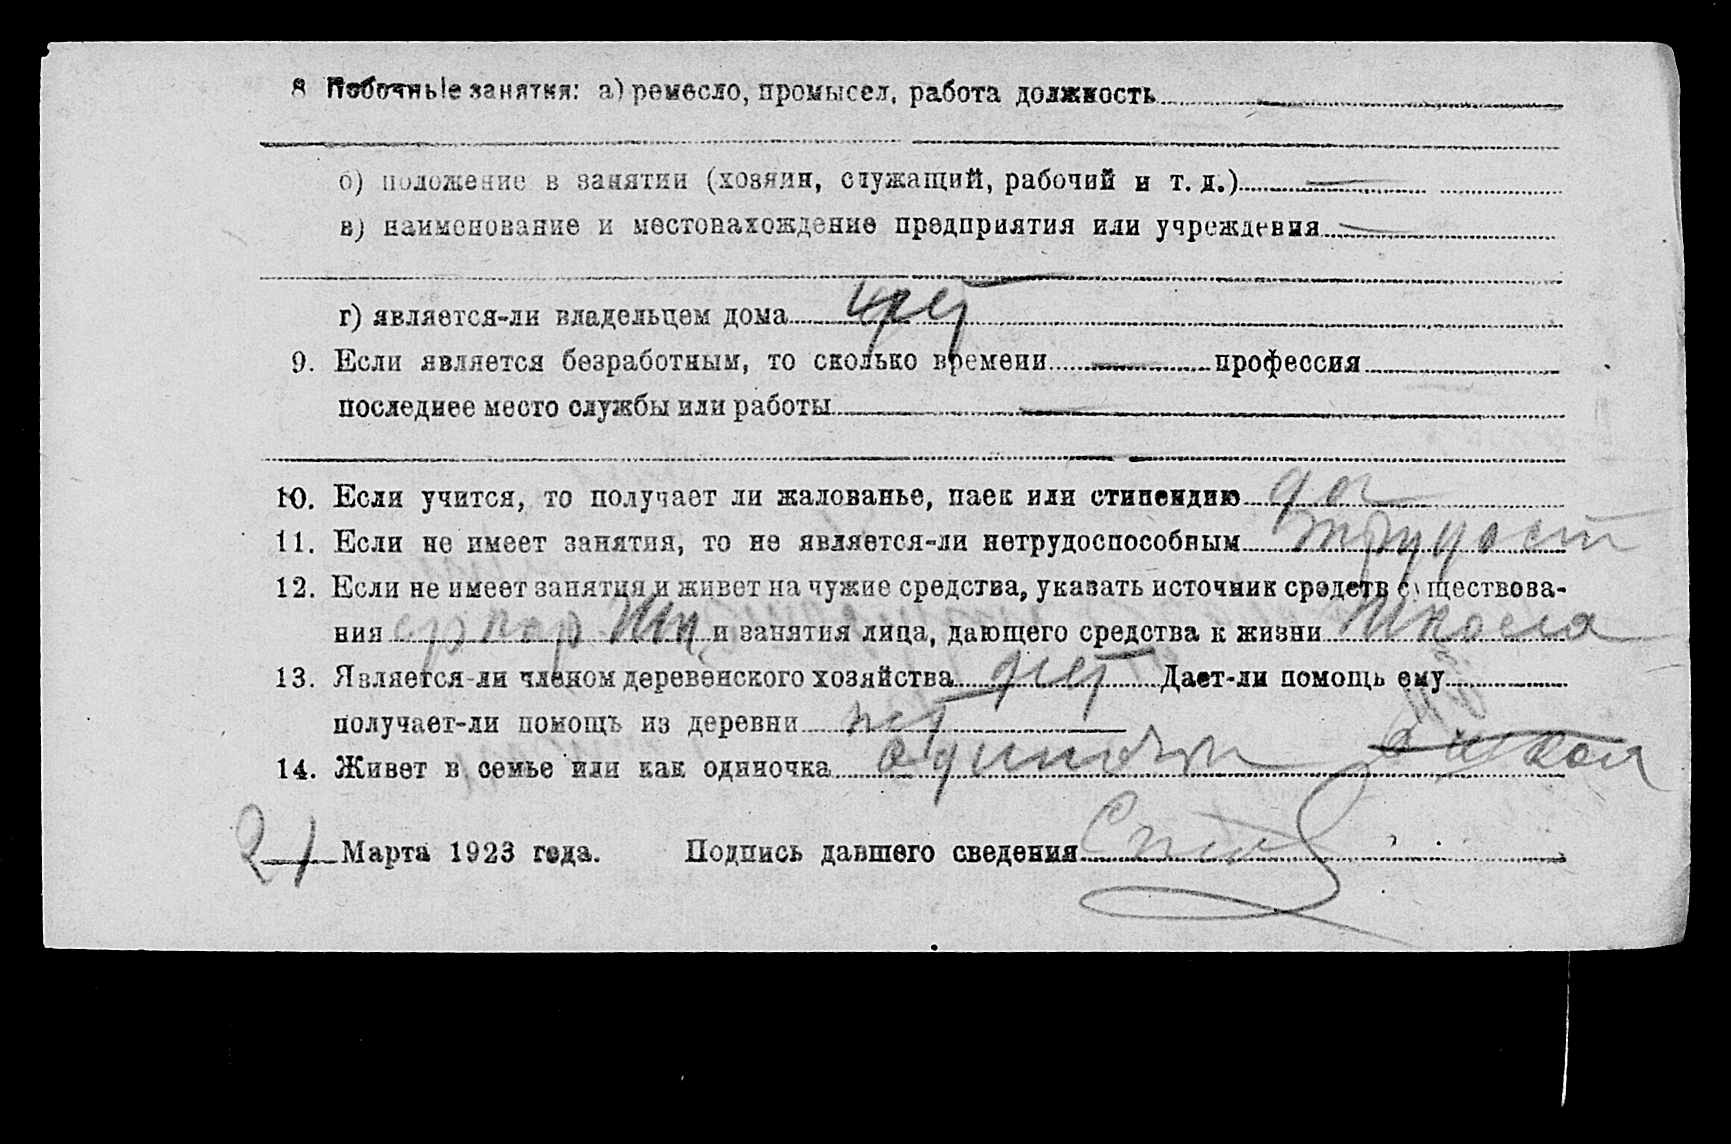 8 Побочные занятия: а) ремесло, промысел, работа должность
б) положение в занятии (хозяин, служащий, рабочий и т. д.)
в) наименование и местонахождение предприятия или учреждения
г) является-ли владельцем дома нет
9. Если является безработным, то сколько времени профессия
последнее место службы или работы
10. Если учится, то получает ли жалованье, паек или стипендию да
11. Если не имеет занятия, то не является-ли нетрудоспособным трудосп
12. Если не имеет занятия и живет на чужие средства, указать источник средств существова-
ния и занятия лица, дающего средства к жизни школа
13. Является-ли членом деревенского хозяйства нет Дает-ли помощь ему
получает-ли помощь из деревни нет
14. Живет в семье или как одиночка одиночка
21 Марта 1923 года. Подпись давшего сведения